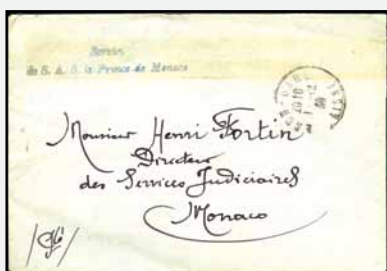 Service
de S. A. S. le Prince de Monaco
Monsieur Henri Fortin
Directeur
des Services Judiciaires
Monaco